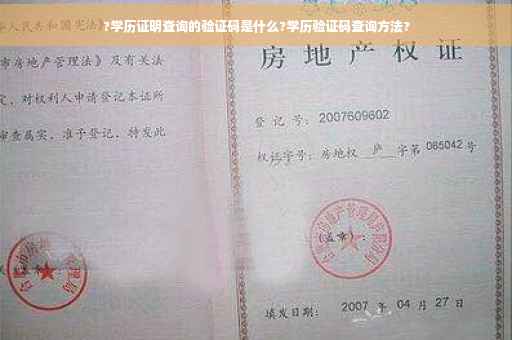 ?学历证明查询的验证码是什么?学历验证码查询方法?
华人民共和国宪法》
市房地产管理法》及有关法
定，对权利人申请登记本证所
审查属实，准予登记，特发此
房地产权证
登记号：2007609602
权证字号：房地权 庐 字第 085042 号
(盖章)：
填发日期：2007 年 04 月 27 日